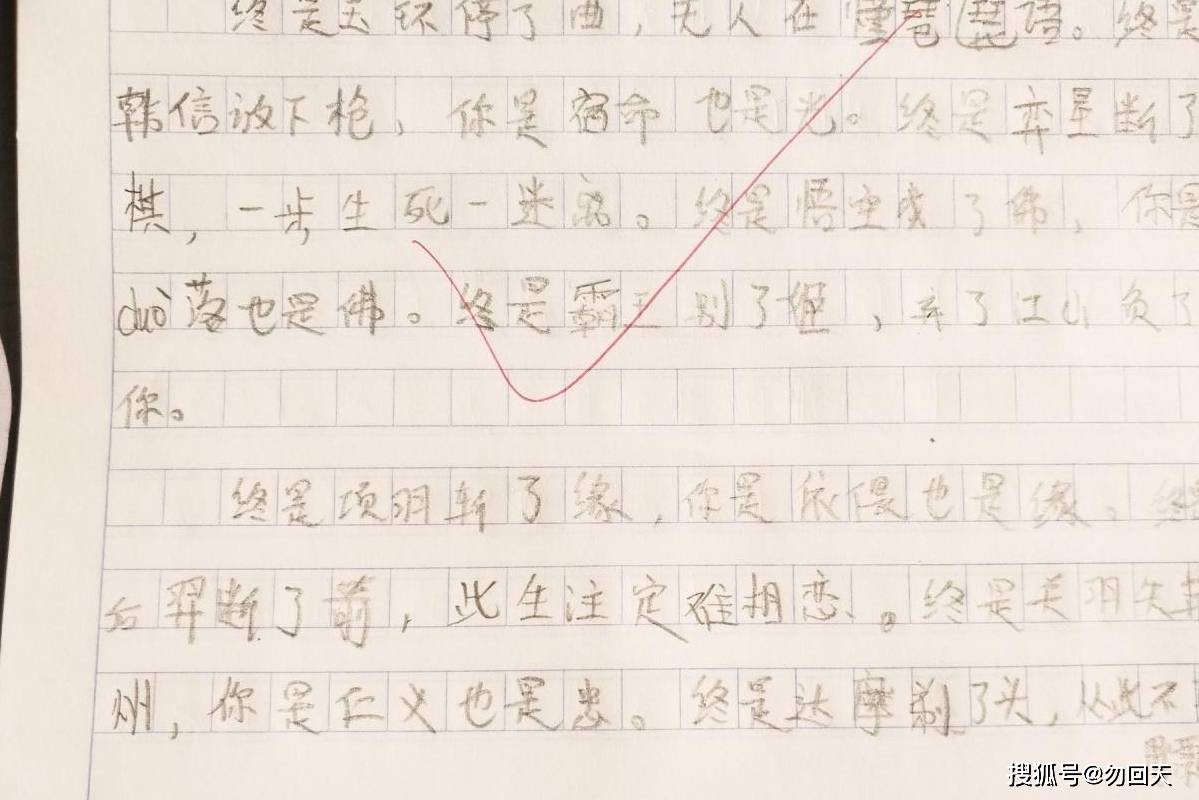 终是玉环停了曲，无人在懂琵琶语。终是
韩信放下枪，你是宿命也是光。终是弈星断了
棋，一步生死一迷离。终是悟空成了佛，你是
duò落也是佛。终是霸王别了姬，弃了江山负了
你。
终是项羽斩了缘，你是依偎也是缘。终
后羿断了箭，此生注定难相恋。终是关羽失荆
州，你是仁义也是忠。终是达摩剃了头，从此不
搜狐号@勿回天